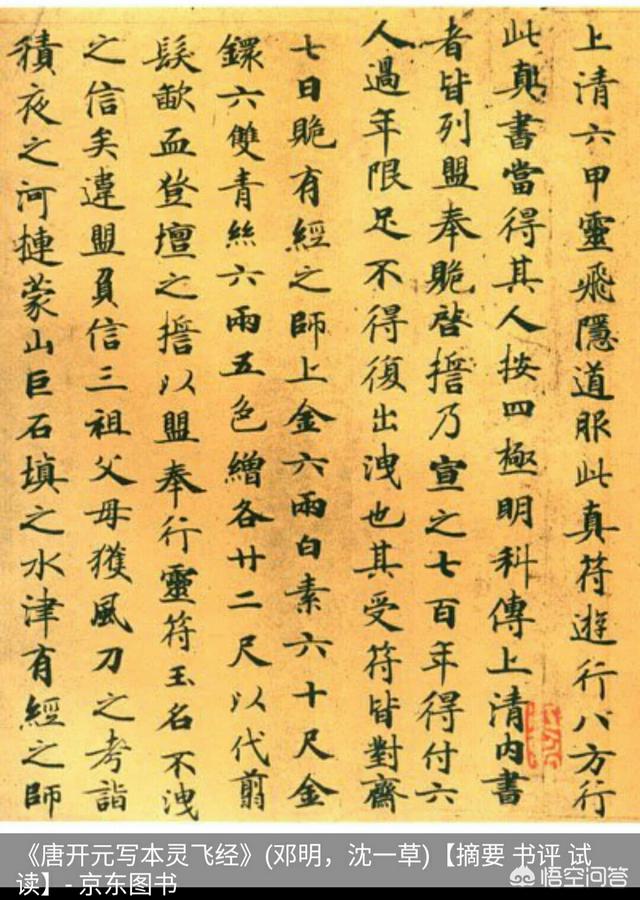 上清六甲靈飛隱道服此真符遊行八方行
此真書當得其人按四極明科傳上清内書
者皆列盟奉貽啓擔乃宣之七百年得付六
人過年限足不得復出洩也其受符皆對齋
七日貽有經之師上金六兩白素六十尺金
鐶六雙青絲六兩五色繒各廿二尺以代翦
髮歃血登壇之擔以盟奉行靈符玉名不洩
之信矣違盟負信三祖父母獲風刀之考詣
積夜之河摙蒙山巨石填之水津有經之師
《唐开元写本灵飞经》(邓明，沈一草)【摘要 书评 试
读】- 京东图书
悟空问答